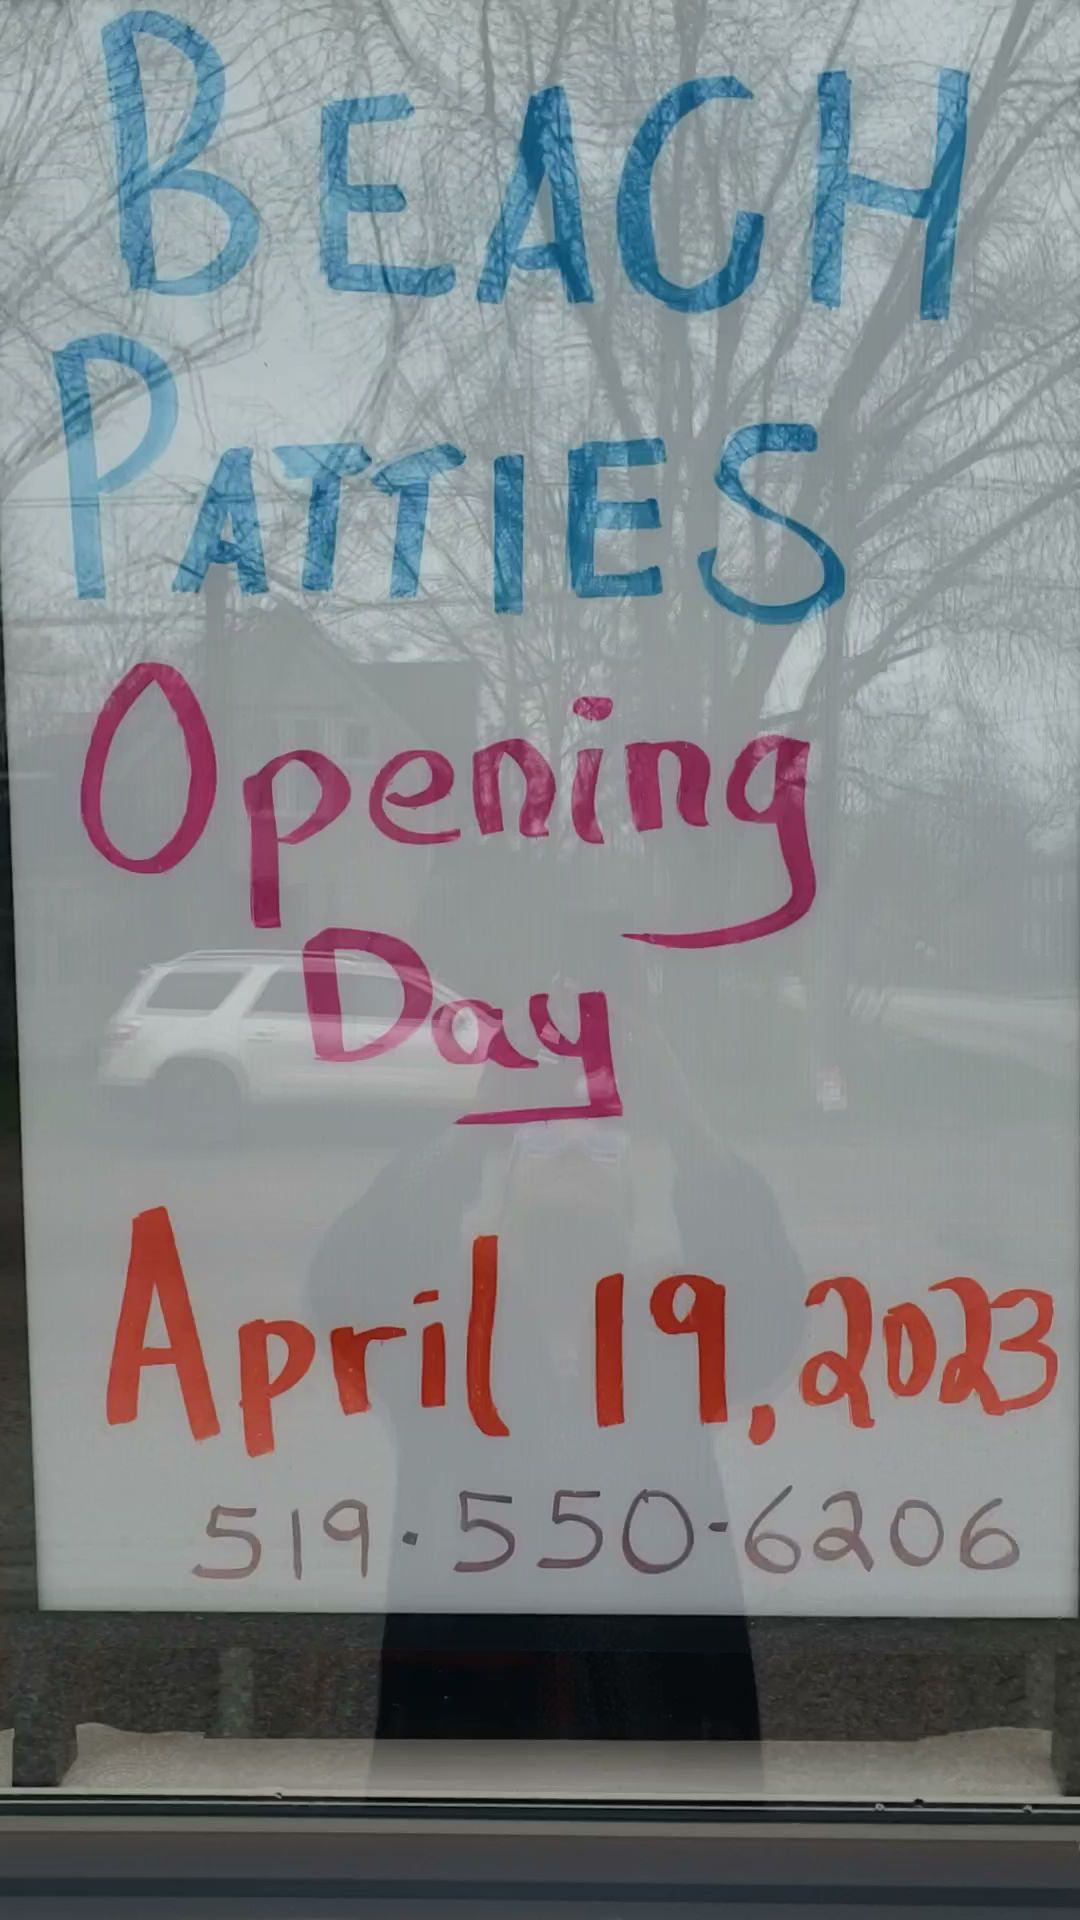 BEACH
PATTIES
Opening
Day
April 19, 2023
519·550-6206